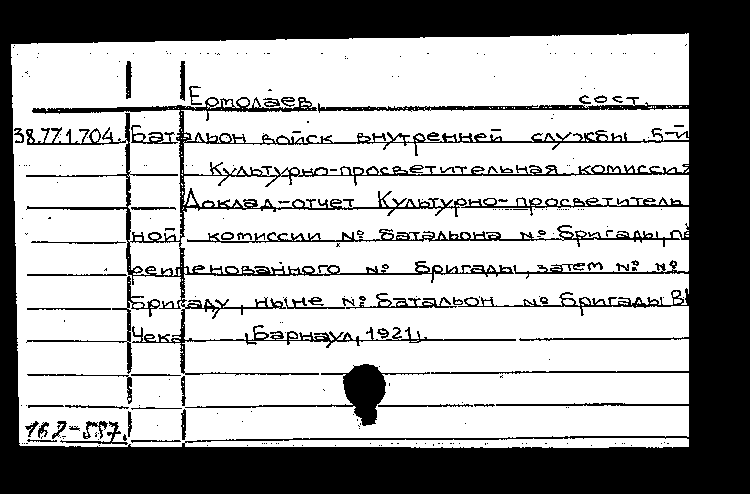 Ермолаев, сост.
38.77.1.704. Батальон войск внутренней службы 5-й
Культурно-просветительная комиссия
Доклад-отчет Культурно-просветитель
ной комиссии № батальона № бригады, пе
реименованного № бригады, затем № №
бригаду, ныне № батальон № бригады В
Чека. [Барнаул, 1921].
162-587.